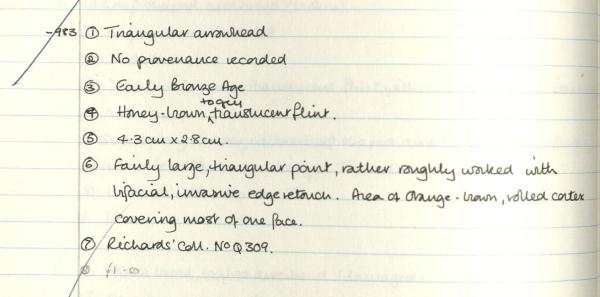 -983 ① Triangular arrowhead
② No provenance recorded
③ Early Bronze Age
④ Honey-brown, to grey translucent flint.
⑤ 4.3cm x 2.8cm.
⑥ Fairly large, triangular point, rather roughly worked with
bifacial, invasive edge retouch. Area of Orange-brown, rolled cortex
covering most of one face.
⑦ Richards' Coll. No Q309.
⑧ £1-00